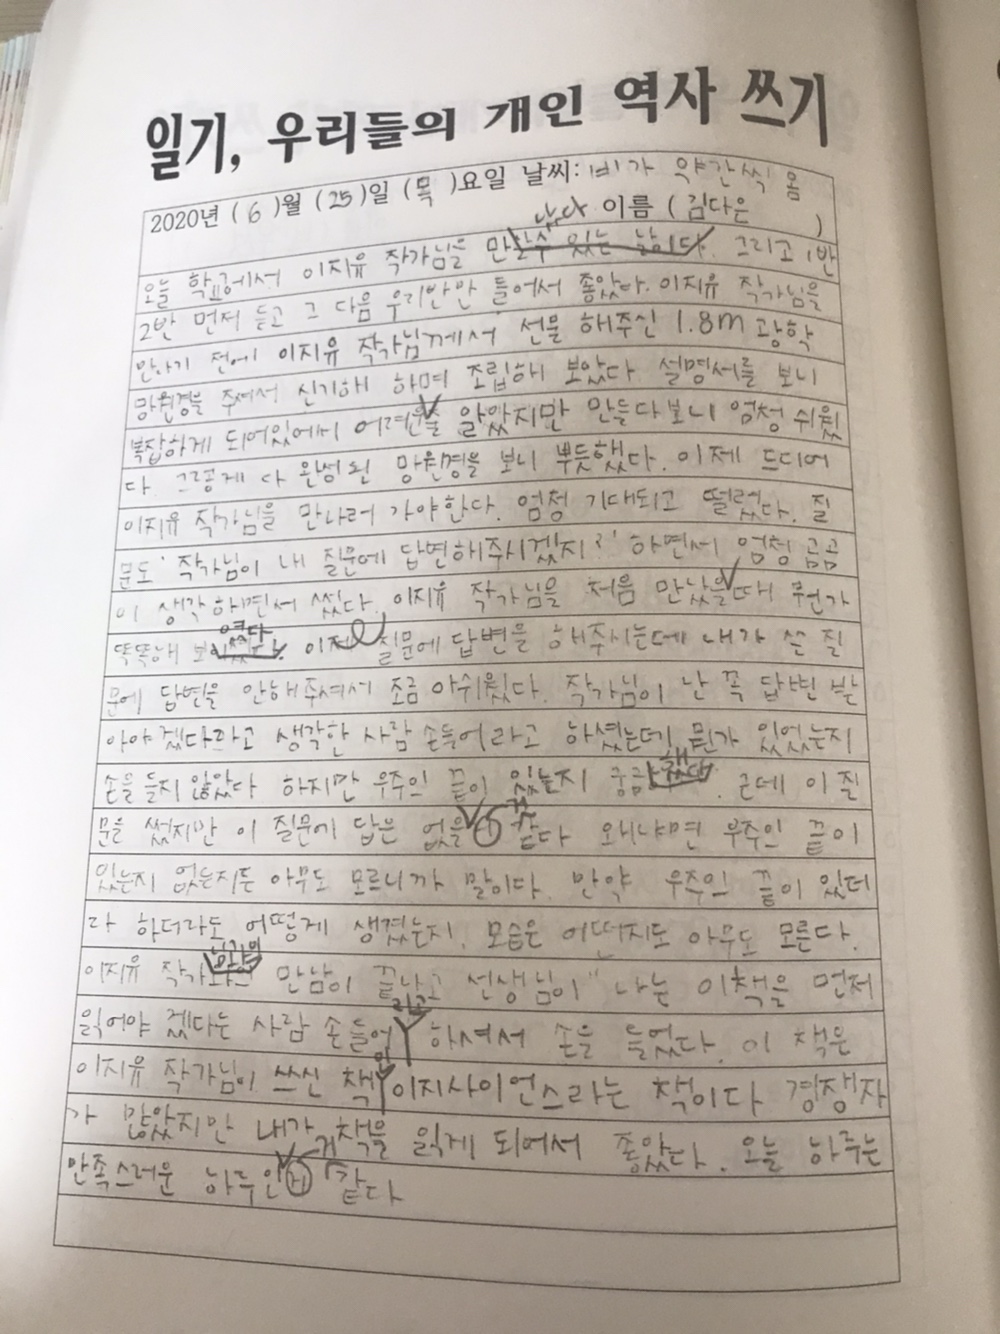 일기, 우리들의 개인 역사 쓰기
2020년 (6)월 (25)일 (목)요일 날씨: 비가 약간씩 옴
났다 이름 (김다은 )
오늘 학교에서 이지유 작가님을 만날수 있는 날이다. 그리고 1반
2반 먼저 듣고 그 다음 우리반만 들어서 좋았다. 이지유 작가님을
만나기 전에 이지유 작가님께서 선물 해주신 1.8m 광학
망원경을 주셔서 신기해 하며 조립해 보았다. 설명서를 보니
복잡하게 되어있어서 어려운줄 알았지만 만들다보니 엄청 쉬웠
다. 그렇게 다 완성된 망원경을 보니 뿌듯했다. 이제 드디어
이지유 작가님을 만나러 가야한다. 엄청 기대되고 떨렸다. 질
문도 '작가님이 내 질문에 답변해주시겠지?' 하면서 엄청 곰곰
이 생각하면서 썼다. 이지유 작가님을 처음 만났을때 뭔가
똑똑해 이제 질문에 답변을 해주시는데 내가 쓴 질
문에 답변을 안해주셔서 조금 아쉬웠다. 작가님이 난 꼭 답변 받
아야겠다라고 생각한 사람 손들어라고 하셨는데 뭔가 있었는지
손을 들지 않았다 하지만 우주의 끝이 있는지 궁금했다. 근데 이 질
문을 썼지만 이 질문에 답은 없을 것 같다 왜냐면 우주의 끝이
있는지 없는지는 아무도 모르니까 말이다. 만약 우주의 끝이 있더
라 하더라도 어떻게 생겼는지, 모습은 어떤지도 아무도 모른다.
이지유 작가님과의 만남이 끝나고 선생님이 "나는 이책을 먼저
읽어야 겠다는 사람 손들어라고 하셔서 손을 들었다. 이 책은
이지유 작가님이 쓰신 책인 이지사이언스라는 책이다 경쟁자
가 많았지만 내가 책을 읽게 되어서 좋았다. 오늘 하루는
만족스러운 하루인 거 같다